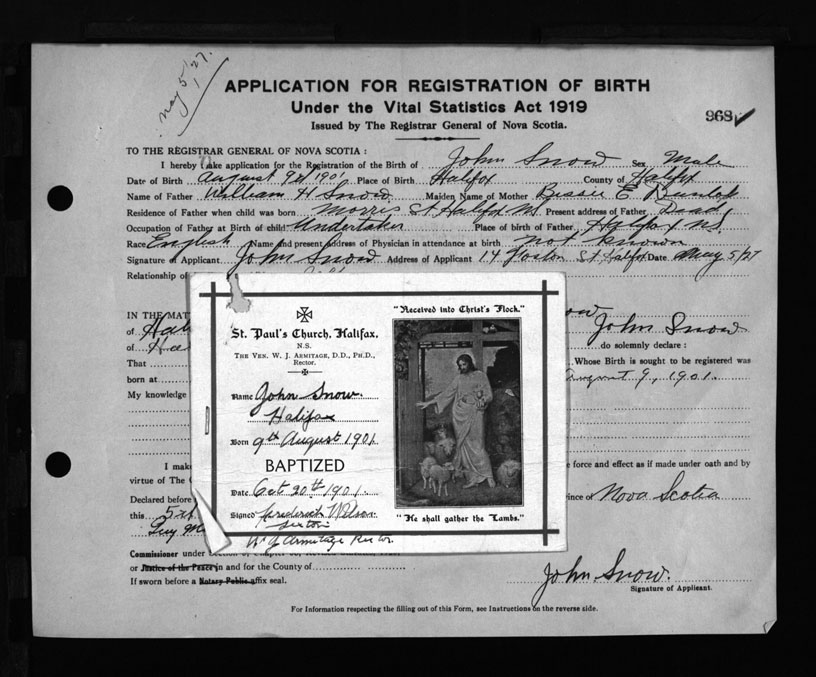 May 5, '27.
APPLICATION FOR REGISTRATION OF BIRTH
Under the Vital Statistics Act 1919
Issued by The Registrar General of Nova Scotia.
968
TO THE REGISTRAR GENERAL OF NOVA SCOTIA:
I hereby make application for the Registration of the Birth of John Snow Sex Male
Date of Birth August 9th 1901 Place of Birth Halifax County of Halifax
Name of Father William H Snow Maiden Name of Mother Bessie E Dunlap
Residence of Father when child was born Morris St Halifax NS Present address of Father Dead
Occupation of Father at Birth of child Undertaker Place of birth of Father Halifax NS
Race English Name and present address of Physician in attendance at birth not known
Signature of Applicant John Snow Address of Applicant 14 St Halifax Date May 5/27
Relationship of
IN THE MAT
of Hal John Snow
of Ha do solemnly declare:
That Whose Birth is sought to be registered was
born at August 9, 1901.
My knowledge
St. Paul's Church, Halifax,
N.S.
THE VEN. W. J. ARMITAGE, D.D., PH.D.,
Rector.
Name John Snow.
Halifax
Born 9th August 1901
BAPTIZED
Date Oct 20th 1901.
Signed Frederick Wilson
Sexton
W J Armitage Rector
"Received into Christ's Flock."
"He shall gather the Lambs."
I make force and effect as if made under oath and by
virtue of The C
Declared before ince of Nova Scotia
this 5th
Guy M
Commissioner under
or Justice of the Peace in and for the County of
If sworn before a Notary Public affix seal.
John Snow.
Signature of Applicant.
For Information respecting the filling out of this Form, see Instructions on the reverse side.